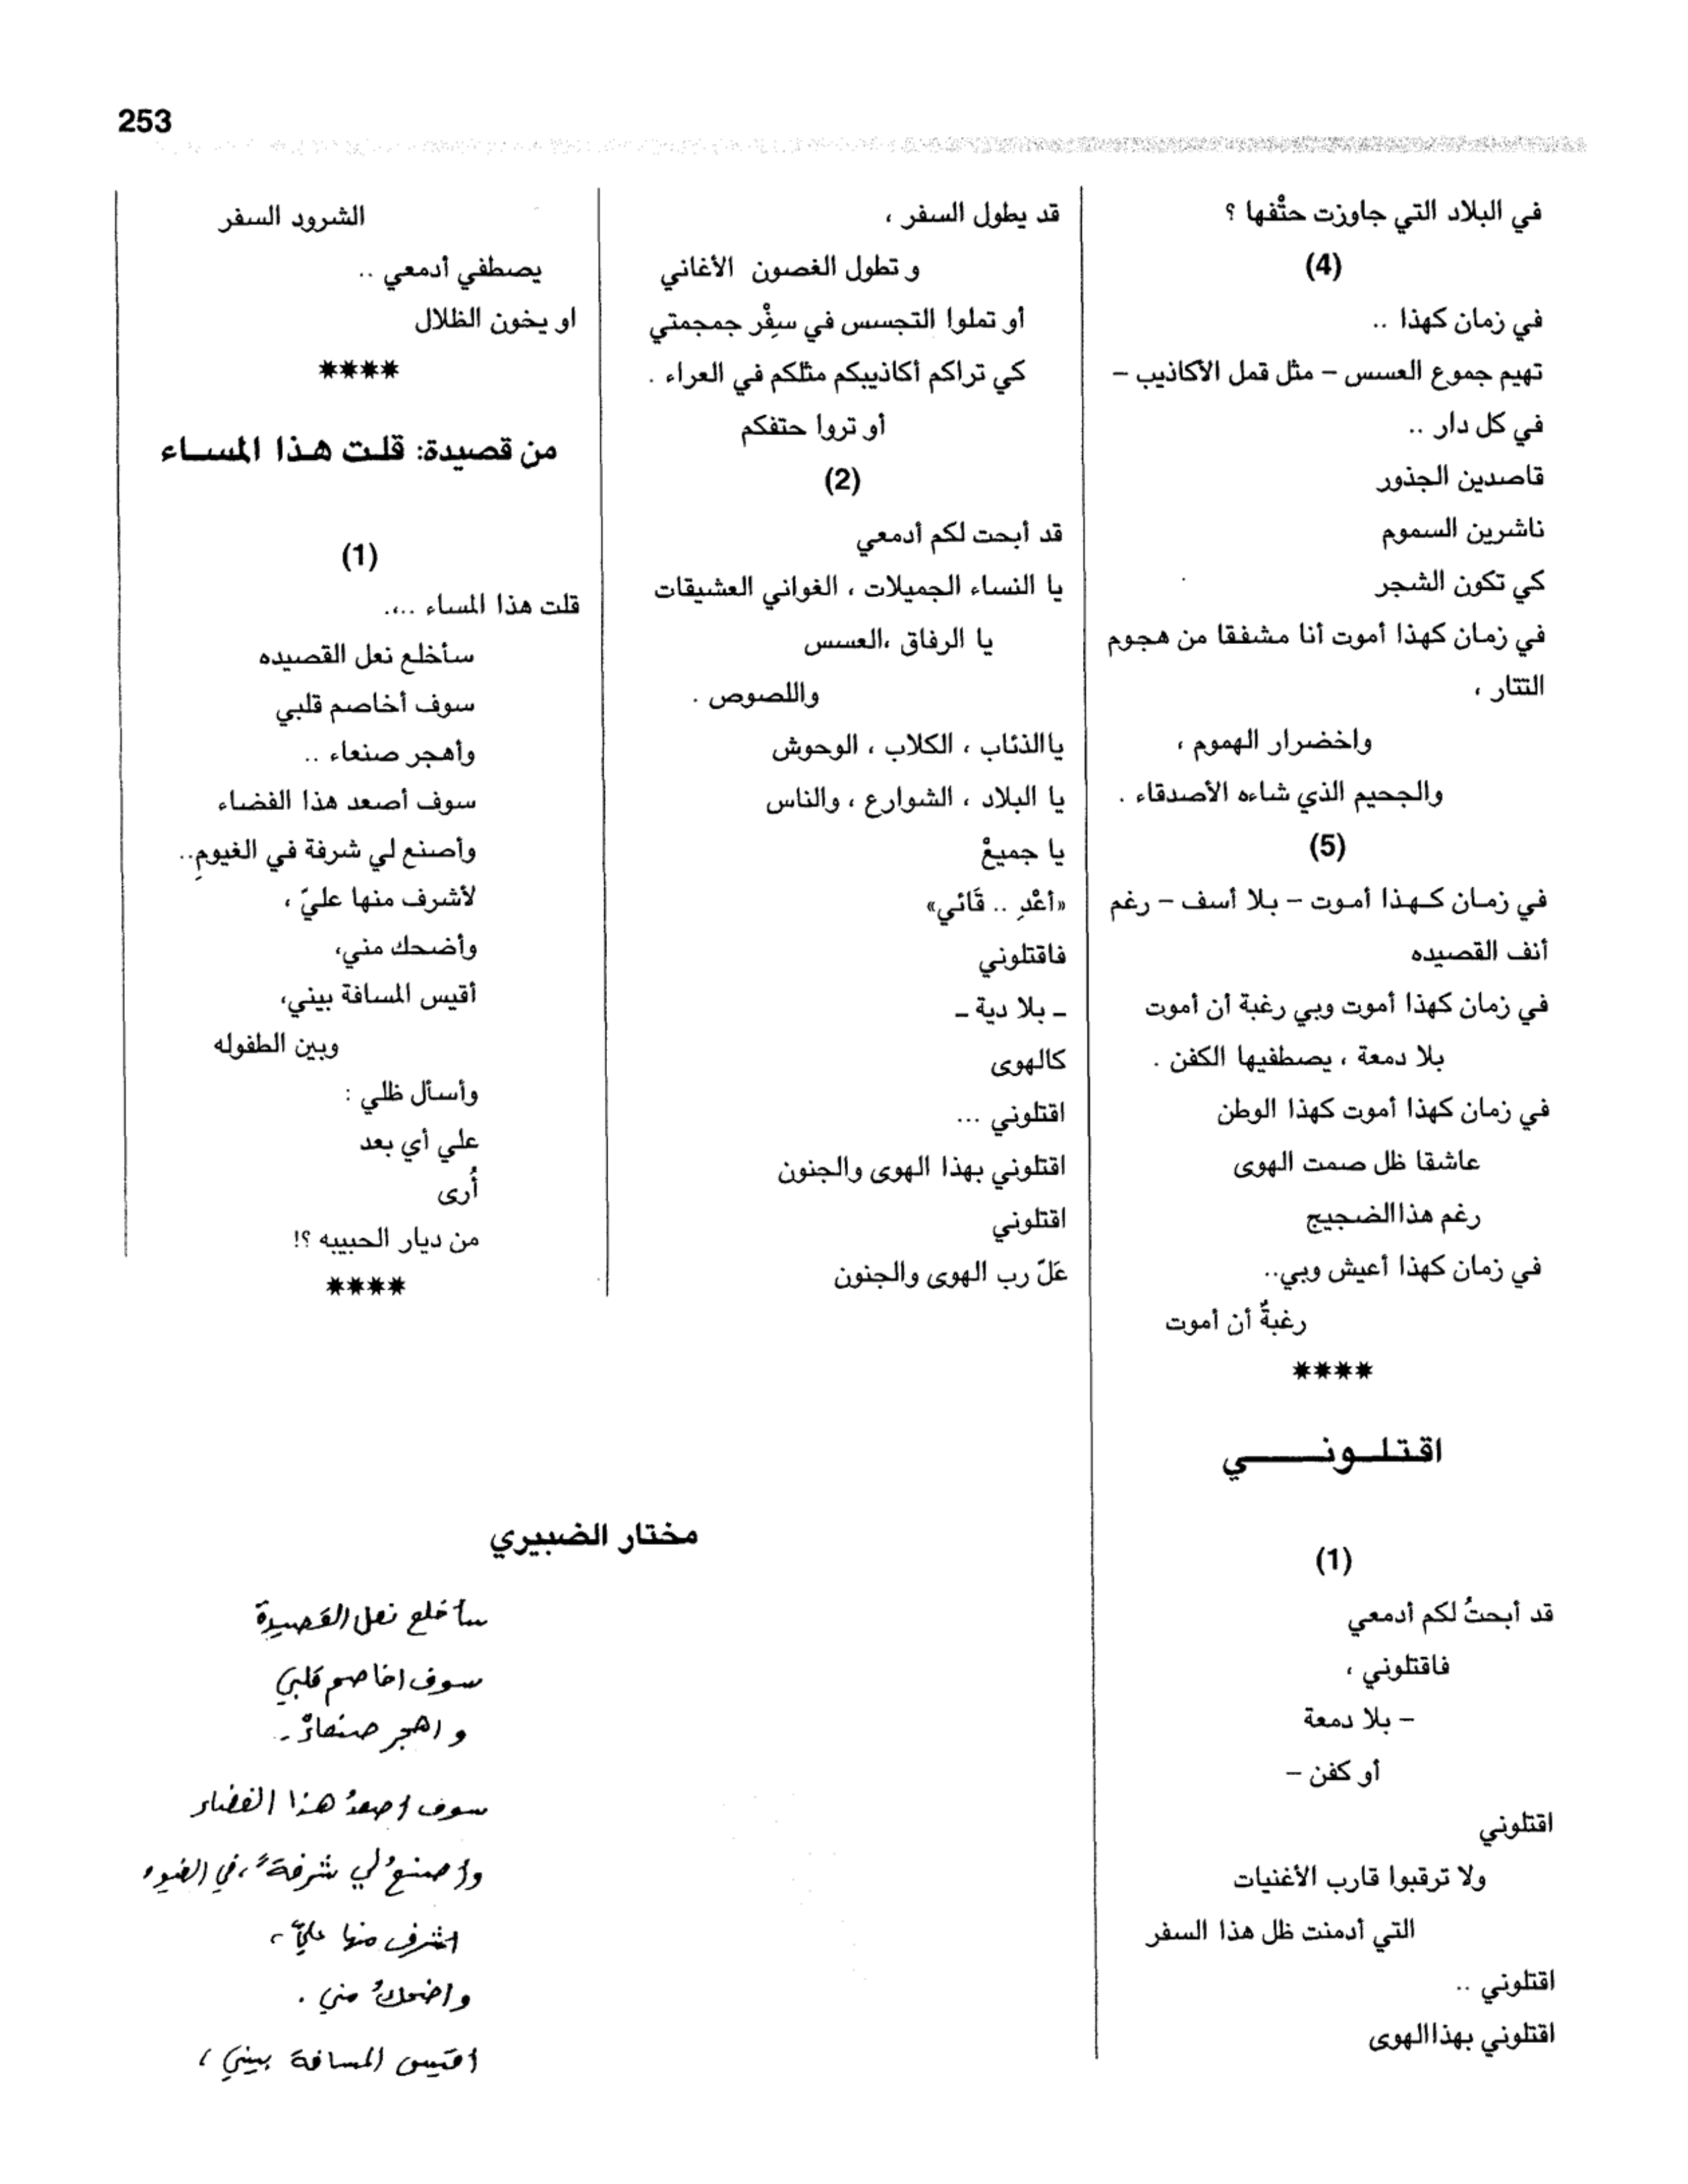 253
في البلاد التي جاوزت حتْفها ؟
(4)
في زمان كهذا ..
تهيم جموع العسس – مثل قمل الأكاذيب –
في كل دار ..
قاصدين الجذور
ناشرين السموم
كي تكون الشجر
في زمان كهذا أموت أنا مشفقا من هجوم
التتار ،
واخضرار الهموم ،
والجحيم الذي شاءه الأصدقاء .
(5)
في زمـان كـهـذا أمـوت – بـلا أسف – رغم
أنف القصيده
في زمان كهذا أموت وبي رغبة أن أموت
بلا دمعة ، يصطفيها الكفن .
في زمان كهذا أموت كهذا الوطن
عاشقا ظل صمت الهوى
رغم هذاالضجيج
في زمان كهذا أعيش وبي..
رغبةٌ أن أموت
****
اقـتـلـونـــــي
(1)
قد أبحتُ لكم أدمعي
فاقتلوني ،
– بلا دمعة
أو كفن –
اقتلوني
ولا ترقبوا قارب الأغنيات
التي أدمنت ظل هذا السفر
اقتلوني ..
اقتلوني بهذاالهوى
قد يطول السفر ،
و تطول الغصون الأغاني
أو تملوا التجسس في سفِْر جمجمتي
كي تراكم أكاذيبكم مثلكم في العراء .
أو تروا حتفكم
(2)
قد أبحت لكم أدمعي
يا النساء الجميلات ، الغواني العشيقات
يا الرفاق ،العسس
واللصوص .
ياالذئاب ، الكلاب ، الوحوش
يا البلاد ، الشوارع ، والناس
يا جميعْ
«أعْدِ .. قَائي»
فاقتلوني
ـ بلا دية ـ
كالهوى
اقتلوني ...
اقتلوني بهذا الهوى والجنون
اقتلوني
عَلّ رب الهوى والجنون
الشرود السفر
يصطفي أدمعي ..
او يخون الظلال
****
من قصيدة: قلـت هـذا المسـاء
(1)
قلت هذا المساء ..،.
سأخلع نعل القصيده
سوف أخاصم قلبي
وأهجر صنعاء ..
سوف أصعد هذا الفضاء
وأصنع لي شرفة في الغيومِ..
لأشرف منها عليّ ،
وأضحك مني،
أقيس المسافة بيني،
وبين الطفوله
وأسأل ظلي :
علي أي بعد
أُرى
من ديار الحبيبه ؟!
****
مختار الضبيري
سأخلع نعل القصيدة
سوف اخاصم قلبي
و اهجر صنعاءْ ..
سوف أصعدُ هذا الفضاء
وأصنعُ لي شرفةً ، في الغيوم
اشرف منها عليّ ،
واضحكُ مني .
اقيس المسافة بيني ،